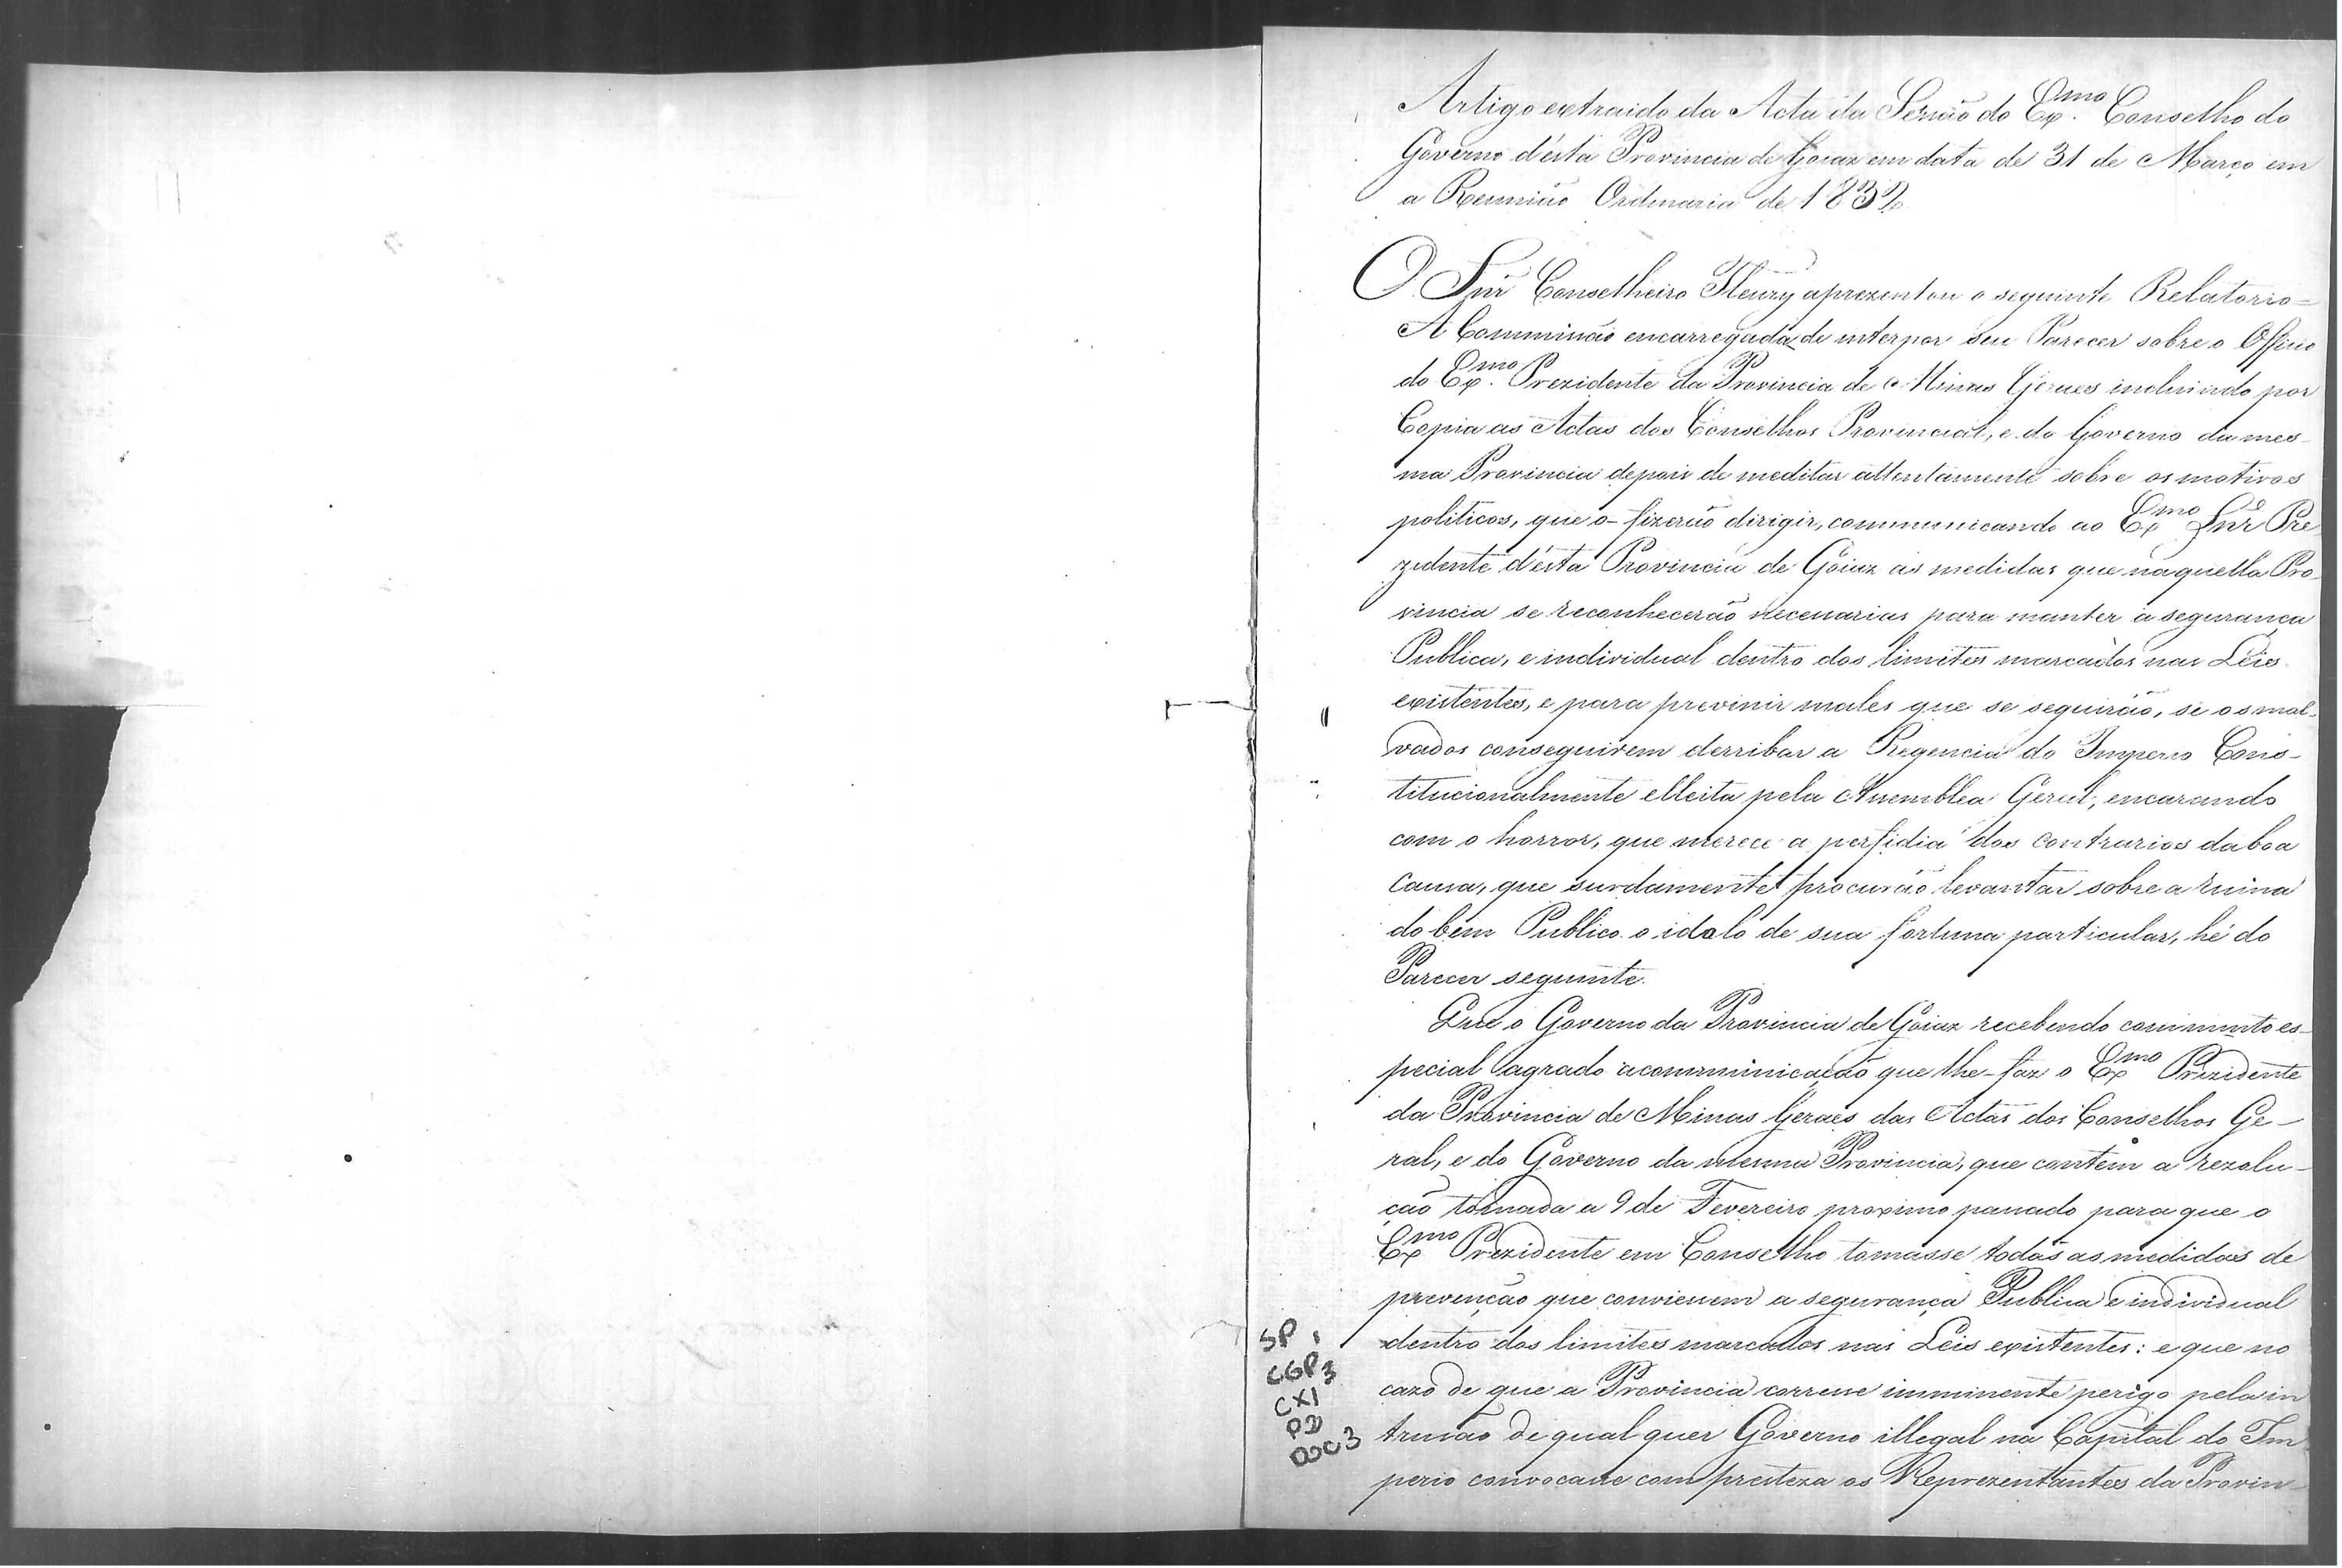 Artigo extraido da Acta da Sessão do Ex.mo Conselho do
Governo d'ésta Provincia de Goiaz em data de 31 de Março em
a Reunnião Ordinaria de 1832
O Snr Conselheiro Fleury aprezentou o seguinte Relatorio=
A Commissão encarregada de interpor seu Parecer sobre o Officio
do Ex.mo Prezidente da Provincia de Minas Geraes incluindo por
Copia as Actas dos Conselhos Provincial, e do Governo da mes-
ma Provincia depois de meditar attentamente sobre os motivos
politicos, que o-fizerão dirigir, communicando ao Exmo Snr Pre
zidente d'ésta Provincia de Goiaz as medidas que naquella Pro-
vincia se reconhecerão necessarias para manter a segurança
Publica, e individual dentro dos limites marcados nas Leis
existentes, e para previnir males que se seguirão, se os mal-
vados conseguirem derribar a Regencia do Imperio Cons-
titucionalmente elleita pela Assemblea Geral, encarando
com o horror, que merece a perfidia dos contrarios da boa
causa, que surdamente procurão levantar sobre a ruina
do bem Publico o idolo de sua fortuna particular, hé do
Parecer seguinte.
Que o Governo da Provincia de Goiaz recebendo com muito es-
pecial agrado a communicação que lhe-faz o Exmo Prezidente
da Provincia de Minas Geraes das Actas dos Conselhos Ge-
ral, e do Governo da mesma Provincia, que contém a rezolu-
ção tomada a 9 de Fevereiro proximo passado para que o
Exmo Prezidente em Conselho tomasse todas as medidas de
prevenção que conviessem a segurança Publica e individual
dentro dos limites marcados nas Leis existentes: e que no
cazo de que a Provincia corresse imminente perigo pela in
trusão de qual quer Governo illegal na Capital do Im
perio convocasse com presteza os Reprezentantes da Provin
SP 1
CGP3
CX1
PD
DOC3